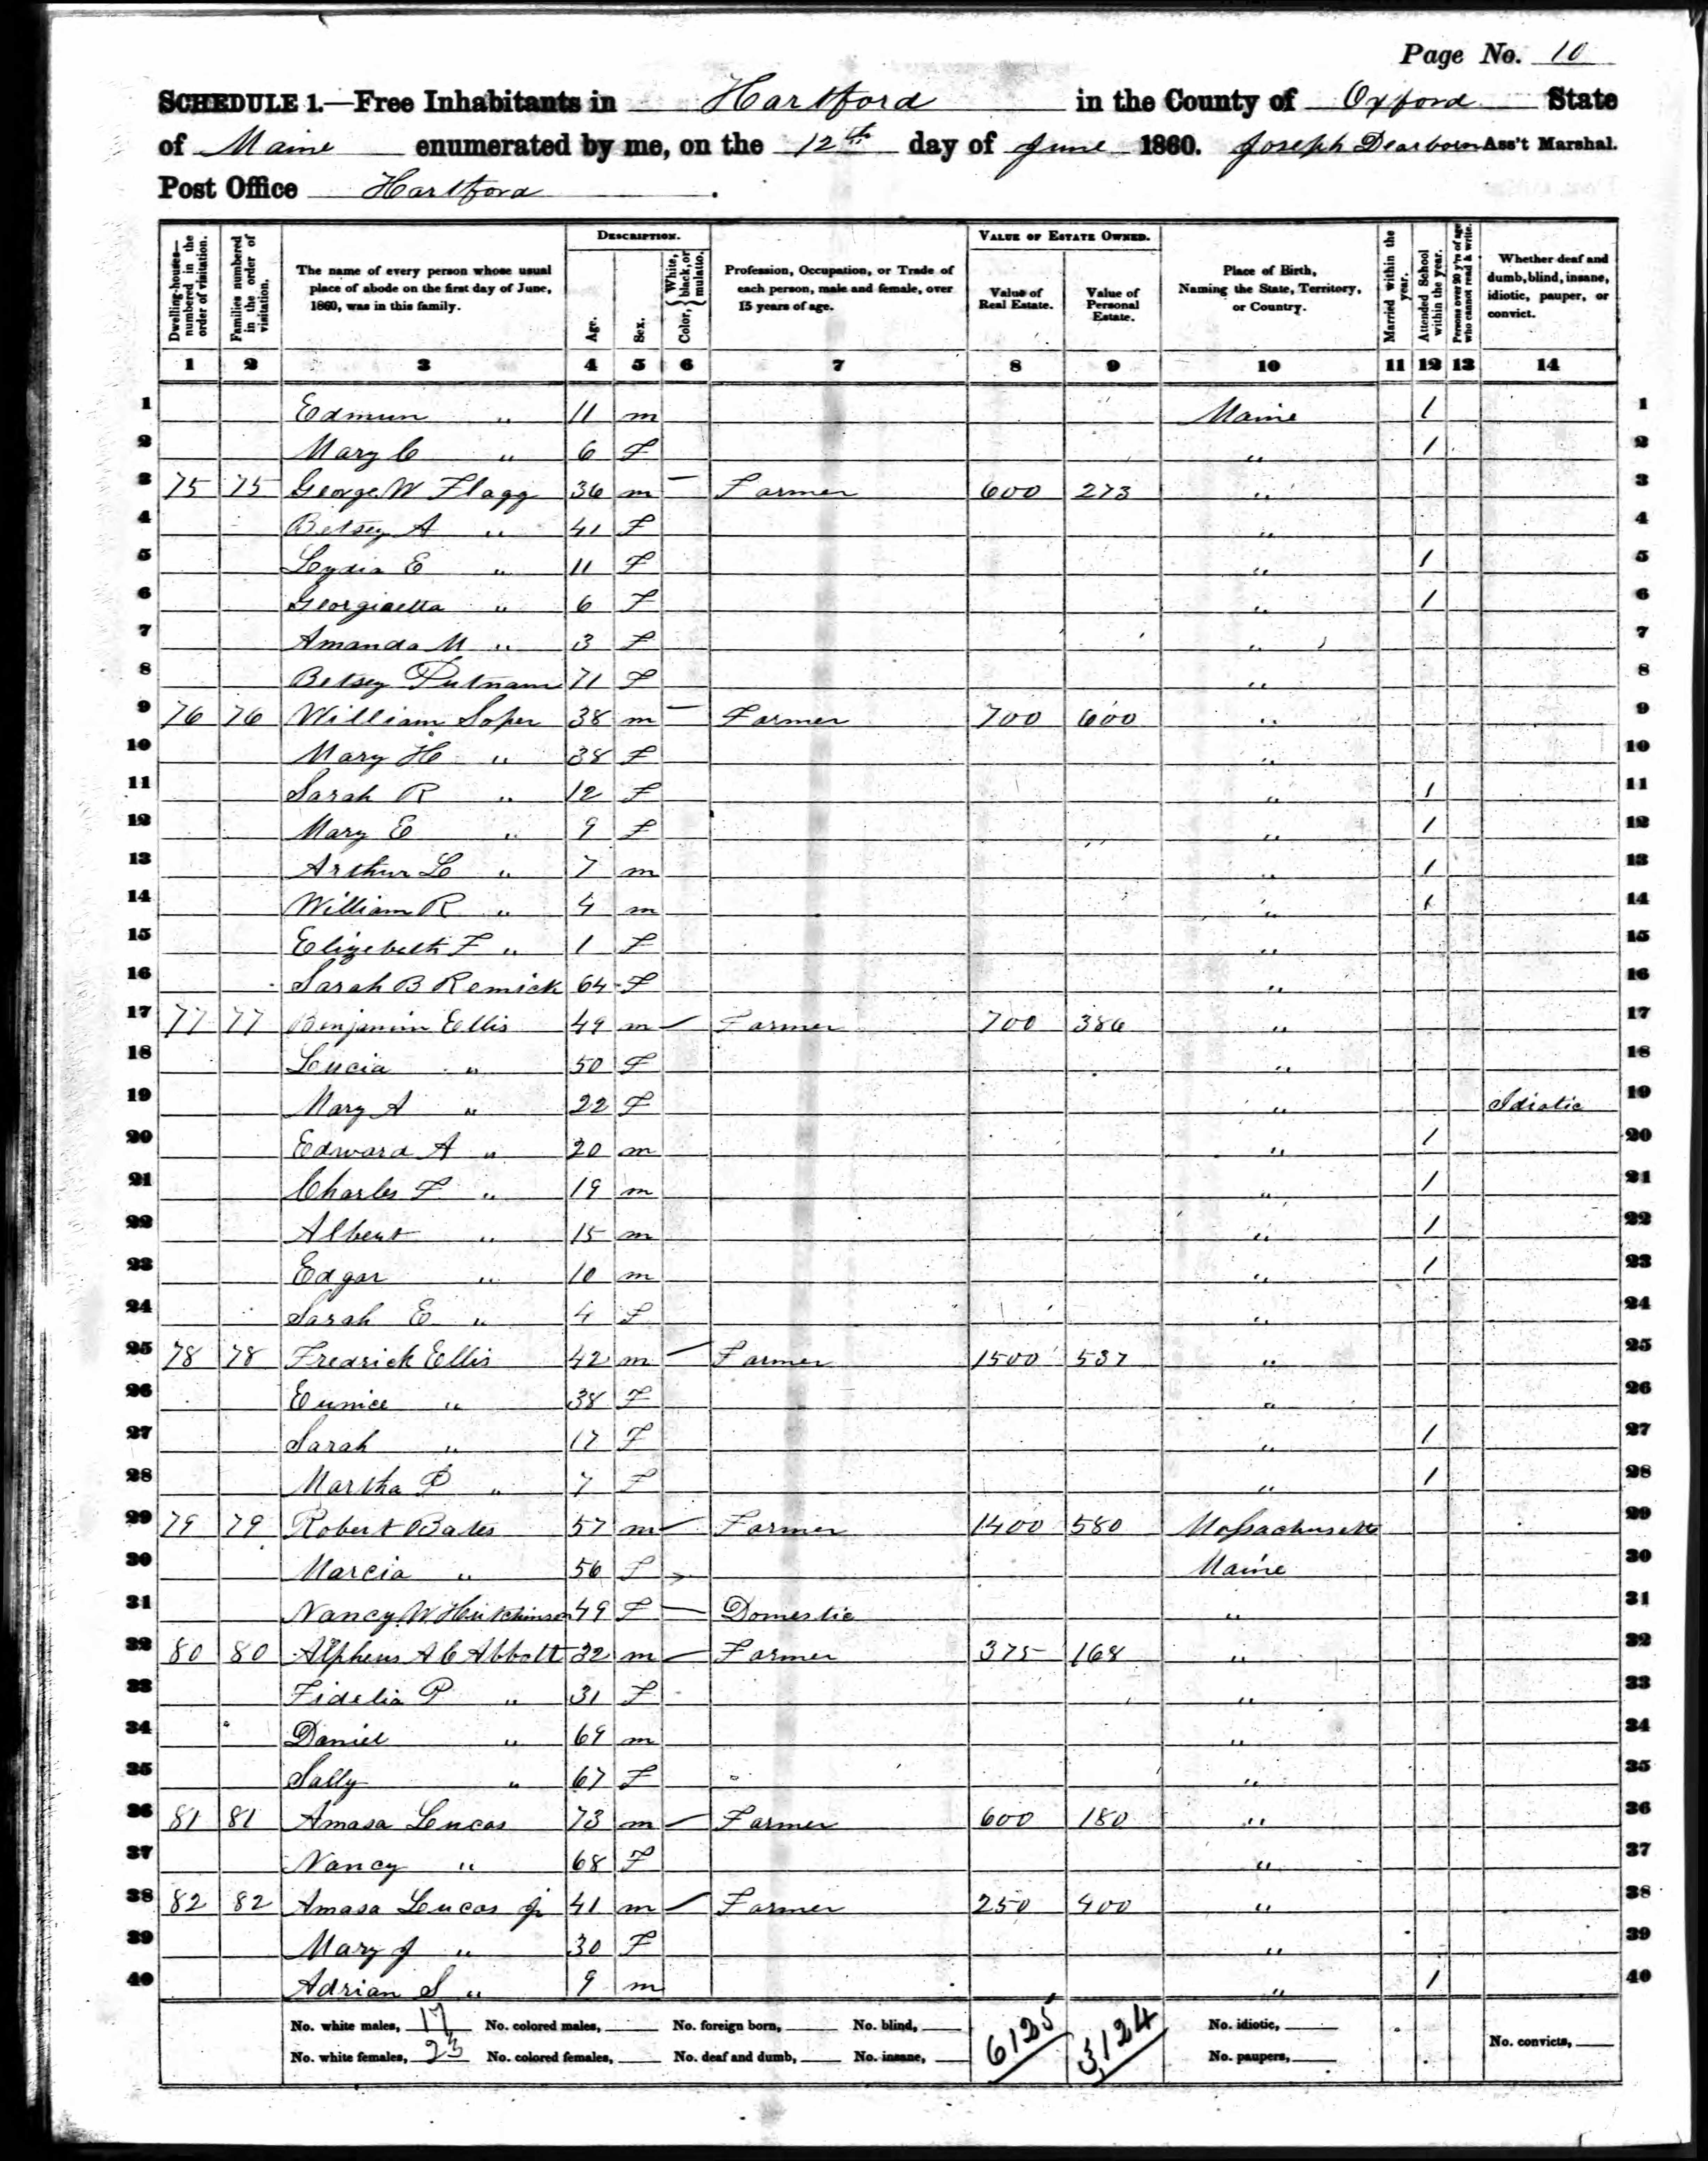 Page No. 10
SCHEDULE 1.—Free Inhabitants in Hartford in the County of Oxford State
of Maine enumerated by me, on the 12th day of June 1860. Joseph Dearborn Ass't Marshal.
Post Office Hartford.
Dwelling-houses—numbered in the order of visitation. Families numbered in the order of visitation. The name of every person whose usual place of abode on the first day of June, 1860, was in this family. DESCRIPTION. Age. Sex. Color, { White, black, or mulatto. Profession, Occupation, or Trade of each person, male and female, over 15 years of age. VALUE OF ESTATE OWNED. Value of Real Estate. Value of Personal Estate. Place of Birth, Naming the State, Territory, or Country. Married within the year. Attended School within the year. Persons over 20 y'rs of age who cannot read & write. Whether deaf and dumb, blind, insane, idiotic, pauper, or convict.
1 2 3 4 5 6 7 8 9 10 11 12 13 14
1 Edmun " 11 m Maine 1 1
2 Mary C " 6 F " 1 2
3 75 75 George W Flagg 36 m – Farmer 600 273 " 3
4 Betsey A " 41 F " 4
5 Lydia E " 11 F " 1 5
6 Georgiaetta " 6 F " 1 6
7 Amanda M " 3 F " 7
8 Betsey Putnam 71 F " 8
9 76 76 William Soper 38 m – Farmer 700 600 " 9
10 Mary H " 38 F " 10
11 Sarah R " 12 F " 1 11
12 Mary E " 9 F " 1 12
13 Arthur L " 7 m " 1 13
14 William R " 4 m " 1 14
15 Elizebeth F " 1 F " 15
16 Sarah B Remick 64 F " 16
17 77 77 Benjamin Ellis 49 m – Farmer 700 386 " 17
18 Lucia " 50 F " 18
19 Mary A " 22 F " Idiotic 19
20 Edward A " 20 m " 1 20
21 Charles F " 19 m " 1 21
22 Albert " 15 m " 1 22
23 Edgar " 10 m " 1 23
24 Sarah E " 4 F " 24
25 78 78 Fredrick Ellis 42 m – Farmer 1500 537 " 25
26 Eunice " 38 F " 26
27 Sarah " 17 F " 1 27
28 Martha P " 7 F " 1 28
29 79 79 Robert Bates 57 m – Farmer 1400 580 Massachusetts 29
30 Marcia " 56 F Maine 30
31 Nancy W Hutchinson 49 F – Domestic " 31
32 80 80 Alpheus A C Abbott 32 m – Farmer 375 168 " 32
33 Fidelia P " 31 F " 33
34 Daniel " 69 m " 34
35 Sally " 67 F " 35
36 81 81 Amasa Lucas 73 m – Farmer 600 180 " 36
37 Nancy " 68 F " 37
38 82 82 Amasa Lucas Jr 41 m – Farmer 250 400 " 38
39 Mary J " 30 F " 39
40 Adrian S " 9 m " 1 40
No. white males, 17 No. colored males, No. foreign born, No. blind, 6125 3,124 No. idiotic,
No. white females, 23 No. colored females, No. deaf and dumb, No. insane, No. paupers, No. convicts,